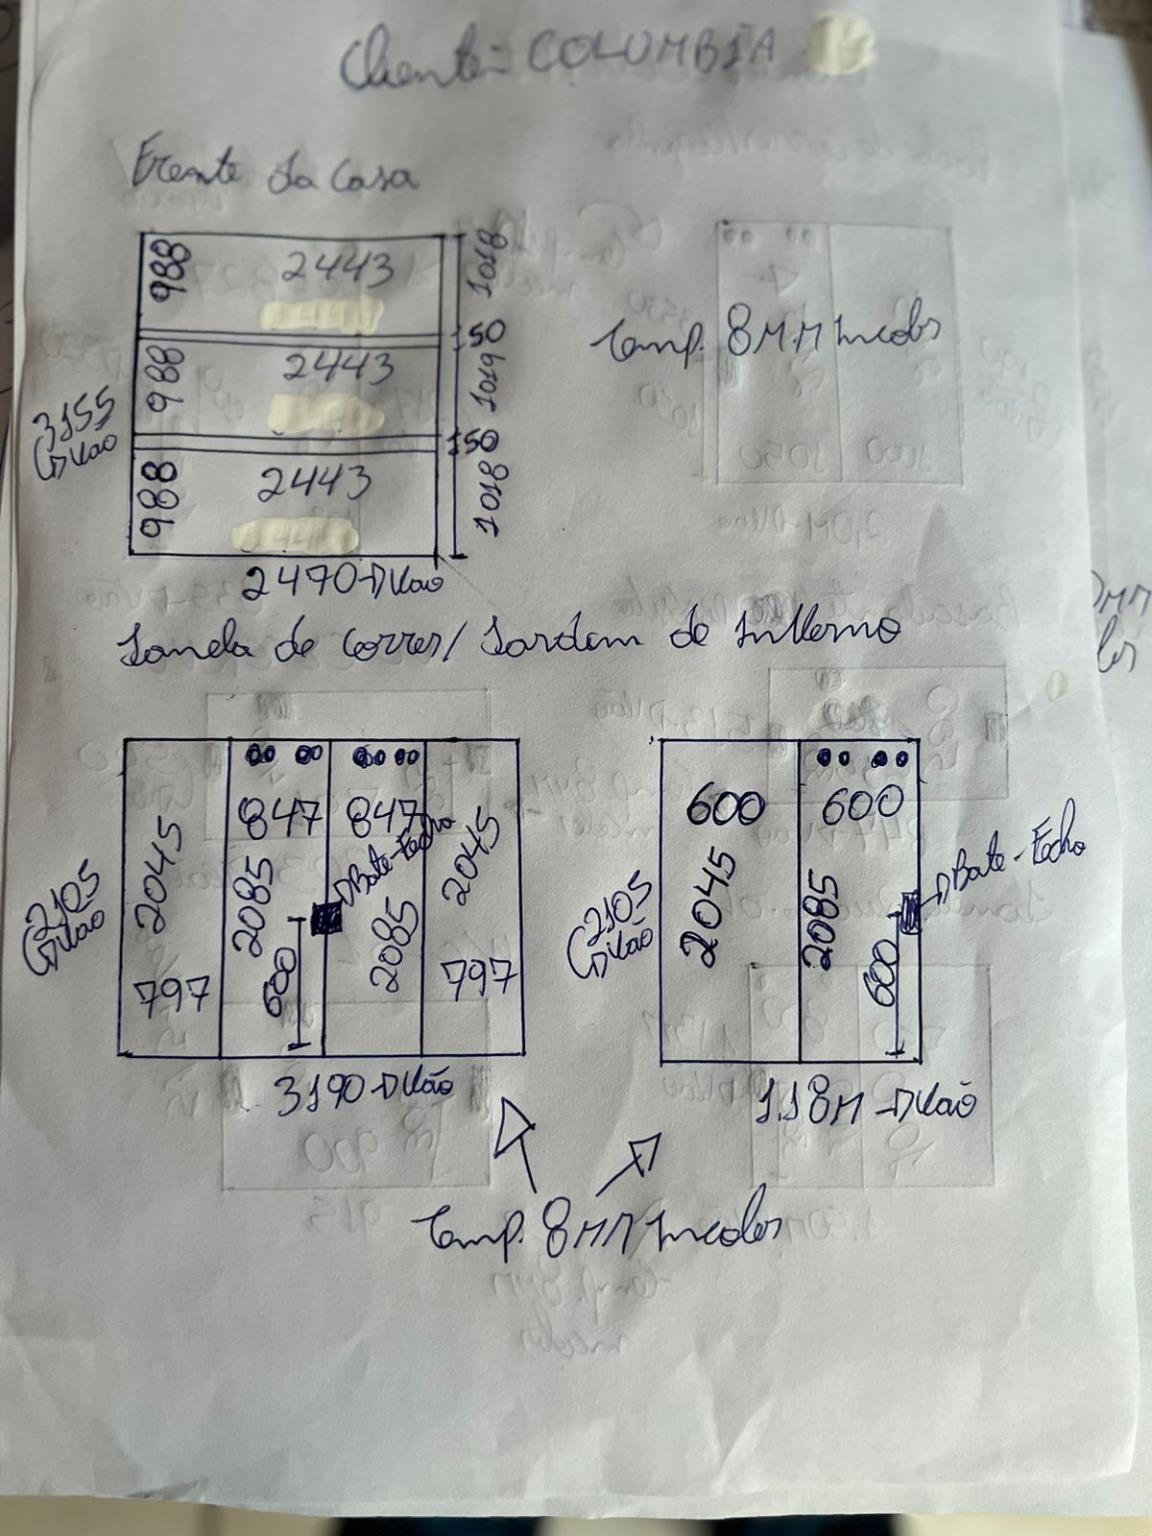 Cliente: COLUMBIA
Frente da Casa
988 2443 1018
50
Temp. 8MM Incolor
988 2443 1019
3155
Vão
50
988 2443 1018
2470 Vão
Janela de Correr / Jardim de Inverno
847 847
600 600
2045 2085 2085 2045
Bate-Fecho
2105
Vão
600
797 797
2045 2085
Bate-Fecho
2105
Vão
600
3190 Vão
1.18M Vão
Temp. 8MM Incolor